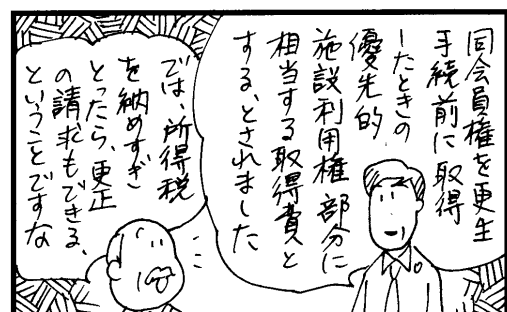 同会員権を更生
手続前に取得
したときの
優先的
施設利用権部分に
相当する取得費と
する、とされました
では、所得税
を納めすぎ
とったら、更正
の請求もできる、
ということですな